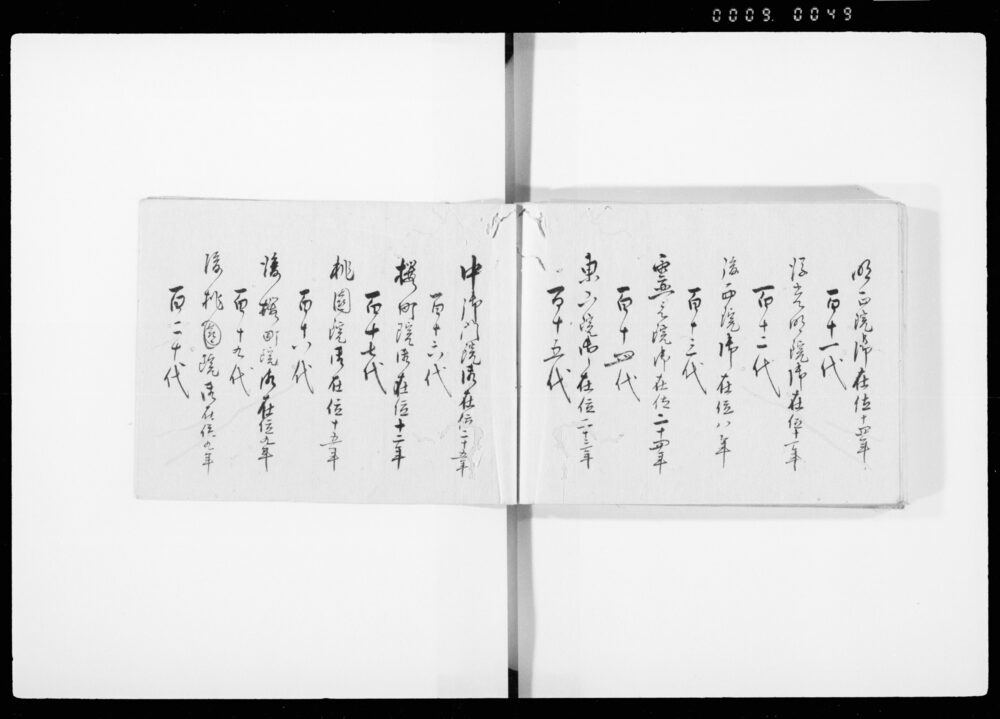 0009. 0049
明正院御在位十四年
百十一代
後光明院御在位十一年
百十二代
後西院御在位八年
百十三代
霊元院御在位二十四年
百十四代
東山院御在位二十三年
百十五代
中御門院御在位二十五年
百十六代
桜町院御在位十二年
百十七代
桃園院御在位十五年
百十八代
後桜町院御在位九年
百十九代
後桃園院御在位九年
百二十代